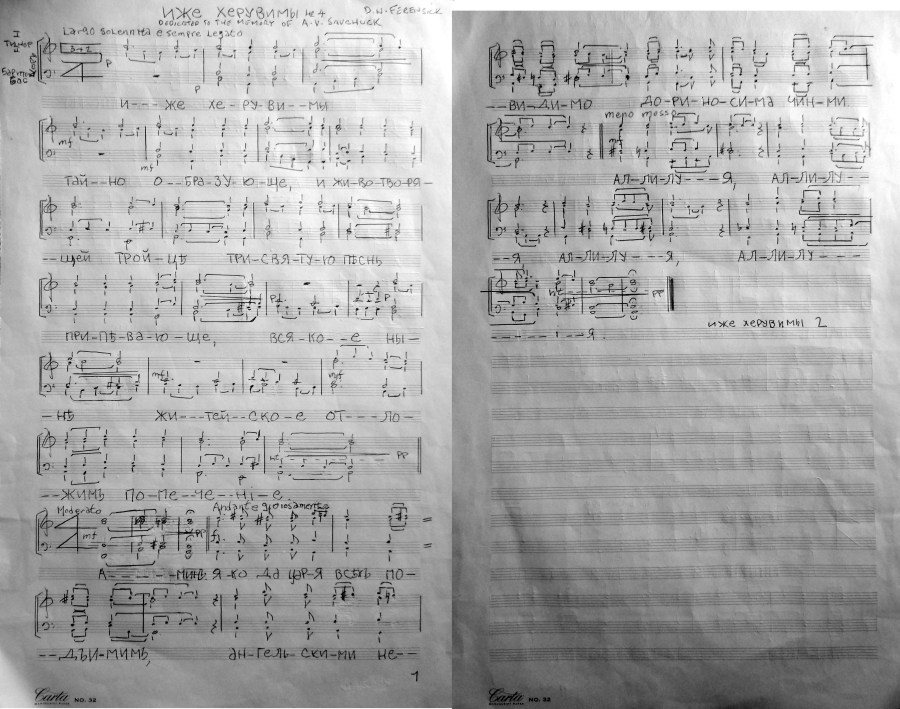 ИЖЕ ХЕРУВИМЫ № 4
DEDICATED TO THE MEMORY OF A.V. SAVCHUCK
Largo solennita e sempre legato
3+2
P
И----ЖЕ ХЕ-РУ-ВИ--МЫ
mf mf
ТАЙ--НО О--БРА-ЗУ-Ю-ЩЕ, И ЖИ-ВО-ТВО-РЯ-
--ЩЕЙ ТРОЙ-ЦѢ ТРИ-СВЯ-ТУ-Ю ПѢСНЬ
P P
ПРИ-ПѢ-ВА-Ю-ЩЕ, ВСЯ-КО--Е НЫ-
mf mf
-НѢ ЖИ---ТЕЙ--СКО-Е ОТ---ЛО-
PP
--ЖИМЪ ПО-ПЕ-ЧЕ--НІ-Е.
Moderato
mf
А-------МИНЬ. Я-КО ДА ЦАР-Я ВСѢХЪ ПО-
--ДЪИ-МИМЪ, АН-ГЕЛЬ-СКИ-МИ НЕ--
1
Carta NO. 32
--ВИ-ДИ-МО ДО-РИ-НО-СИ-МА ЧИН-МИ.
meno mosso
mf
АЛ-ЛИ-ЛУ---Я, АЛ-ЛИ-ЛУ--
--Я АЛ-ЛИ-ЛУ---Я, АЛ-ЛИ-ЛУ---
PP
ИЖЕ ХЕРУВИМЫ 2
-------Я.
Carta NO. 32